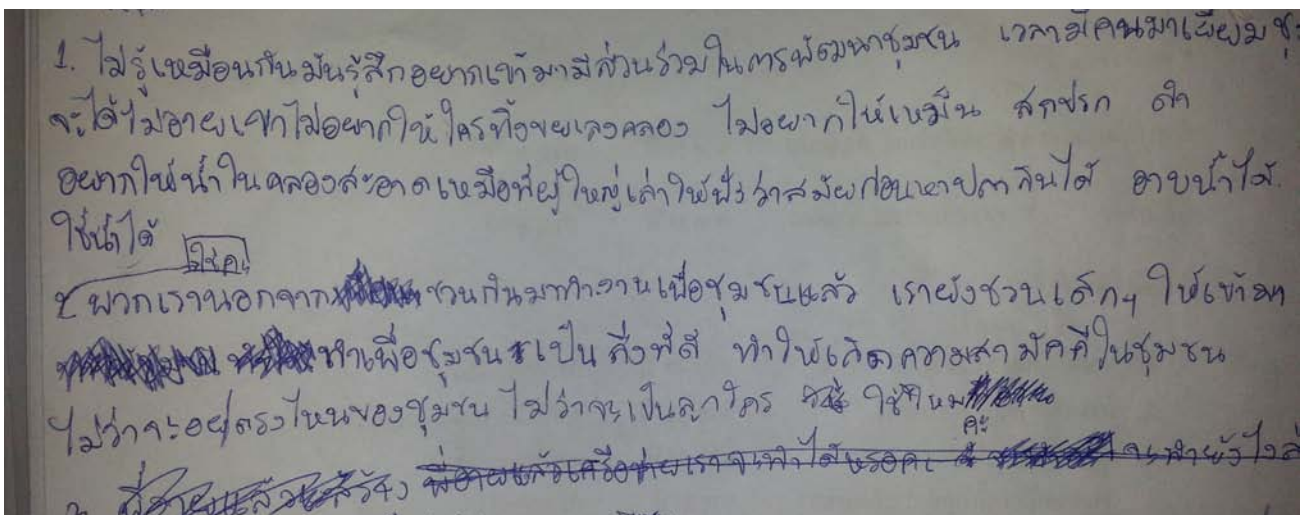 1. ไม่รู้เหมือนกันมันรู้สึกอยากเข้ามามีส่วนร่วมในการพัฒนาชุมชน เวลามีคนมาเยี่ยมชุ
จะได้ไม่อายเขาไม่อยากให้ใครทิ้งขยะลงคลอง ไม่อยากให้เหม็น สกปรก ดำ
อยากให้น้ำในคลองสะอาดเหมือที่ผู้ใหญ่เล่าให้ฟังว่าสมัยก่อนหาปลากินได้ อาบน้ำได้
ใช้น้ำได้
ใช่คะ
พวกเรานอกจากชวนกันมาทำงานเพื่อชุมชนแล้ว เรายังชวนเด็กๆ ให้เข้ามา
ทำเพื่อชุมชน เป็นสิ่งที่ดี ทำให้เกิดความสามัคคีในชุมชน
ไม่ว่าจะอยู่ตรงไหนของชุมชน ไม่ว่าจะเป็นลูกใคร ใช่ไหม
คะ
พี่สายแล้วเครือข่ายเราจะทำได้หรอคะ จะทำยังไง